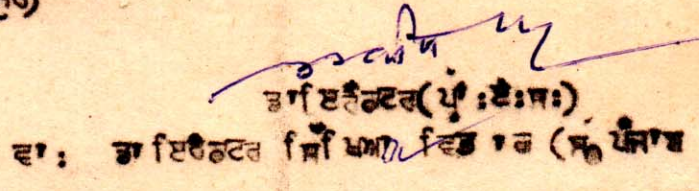 ਡਾਇਰੈਕਟਰ(ਪ੍ਰਾਂ:ਏ:ਜ:)
ਵਾ: ਡਾਇਰੈਕਟਰ ਸਿੱਖਿਆ ਵਿਭਾਗ (ਸ) ਪੰਜਾਬ